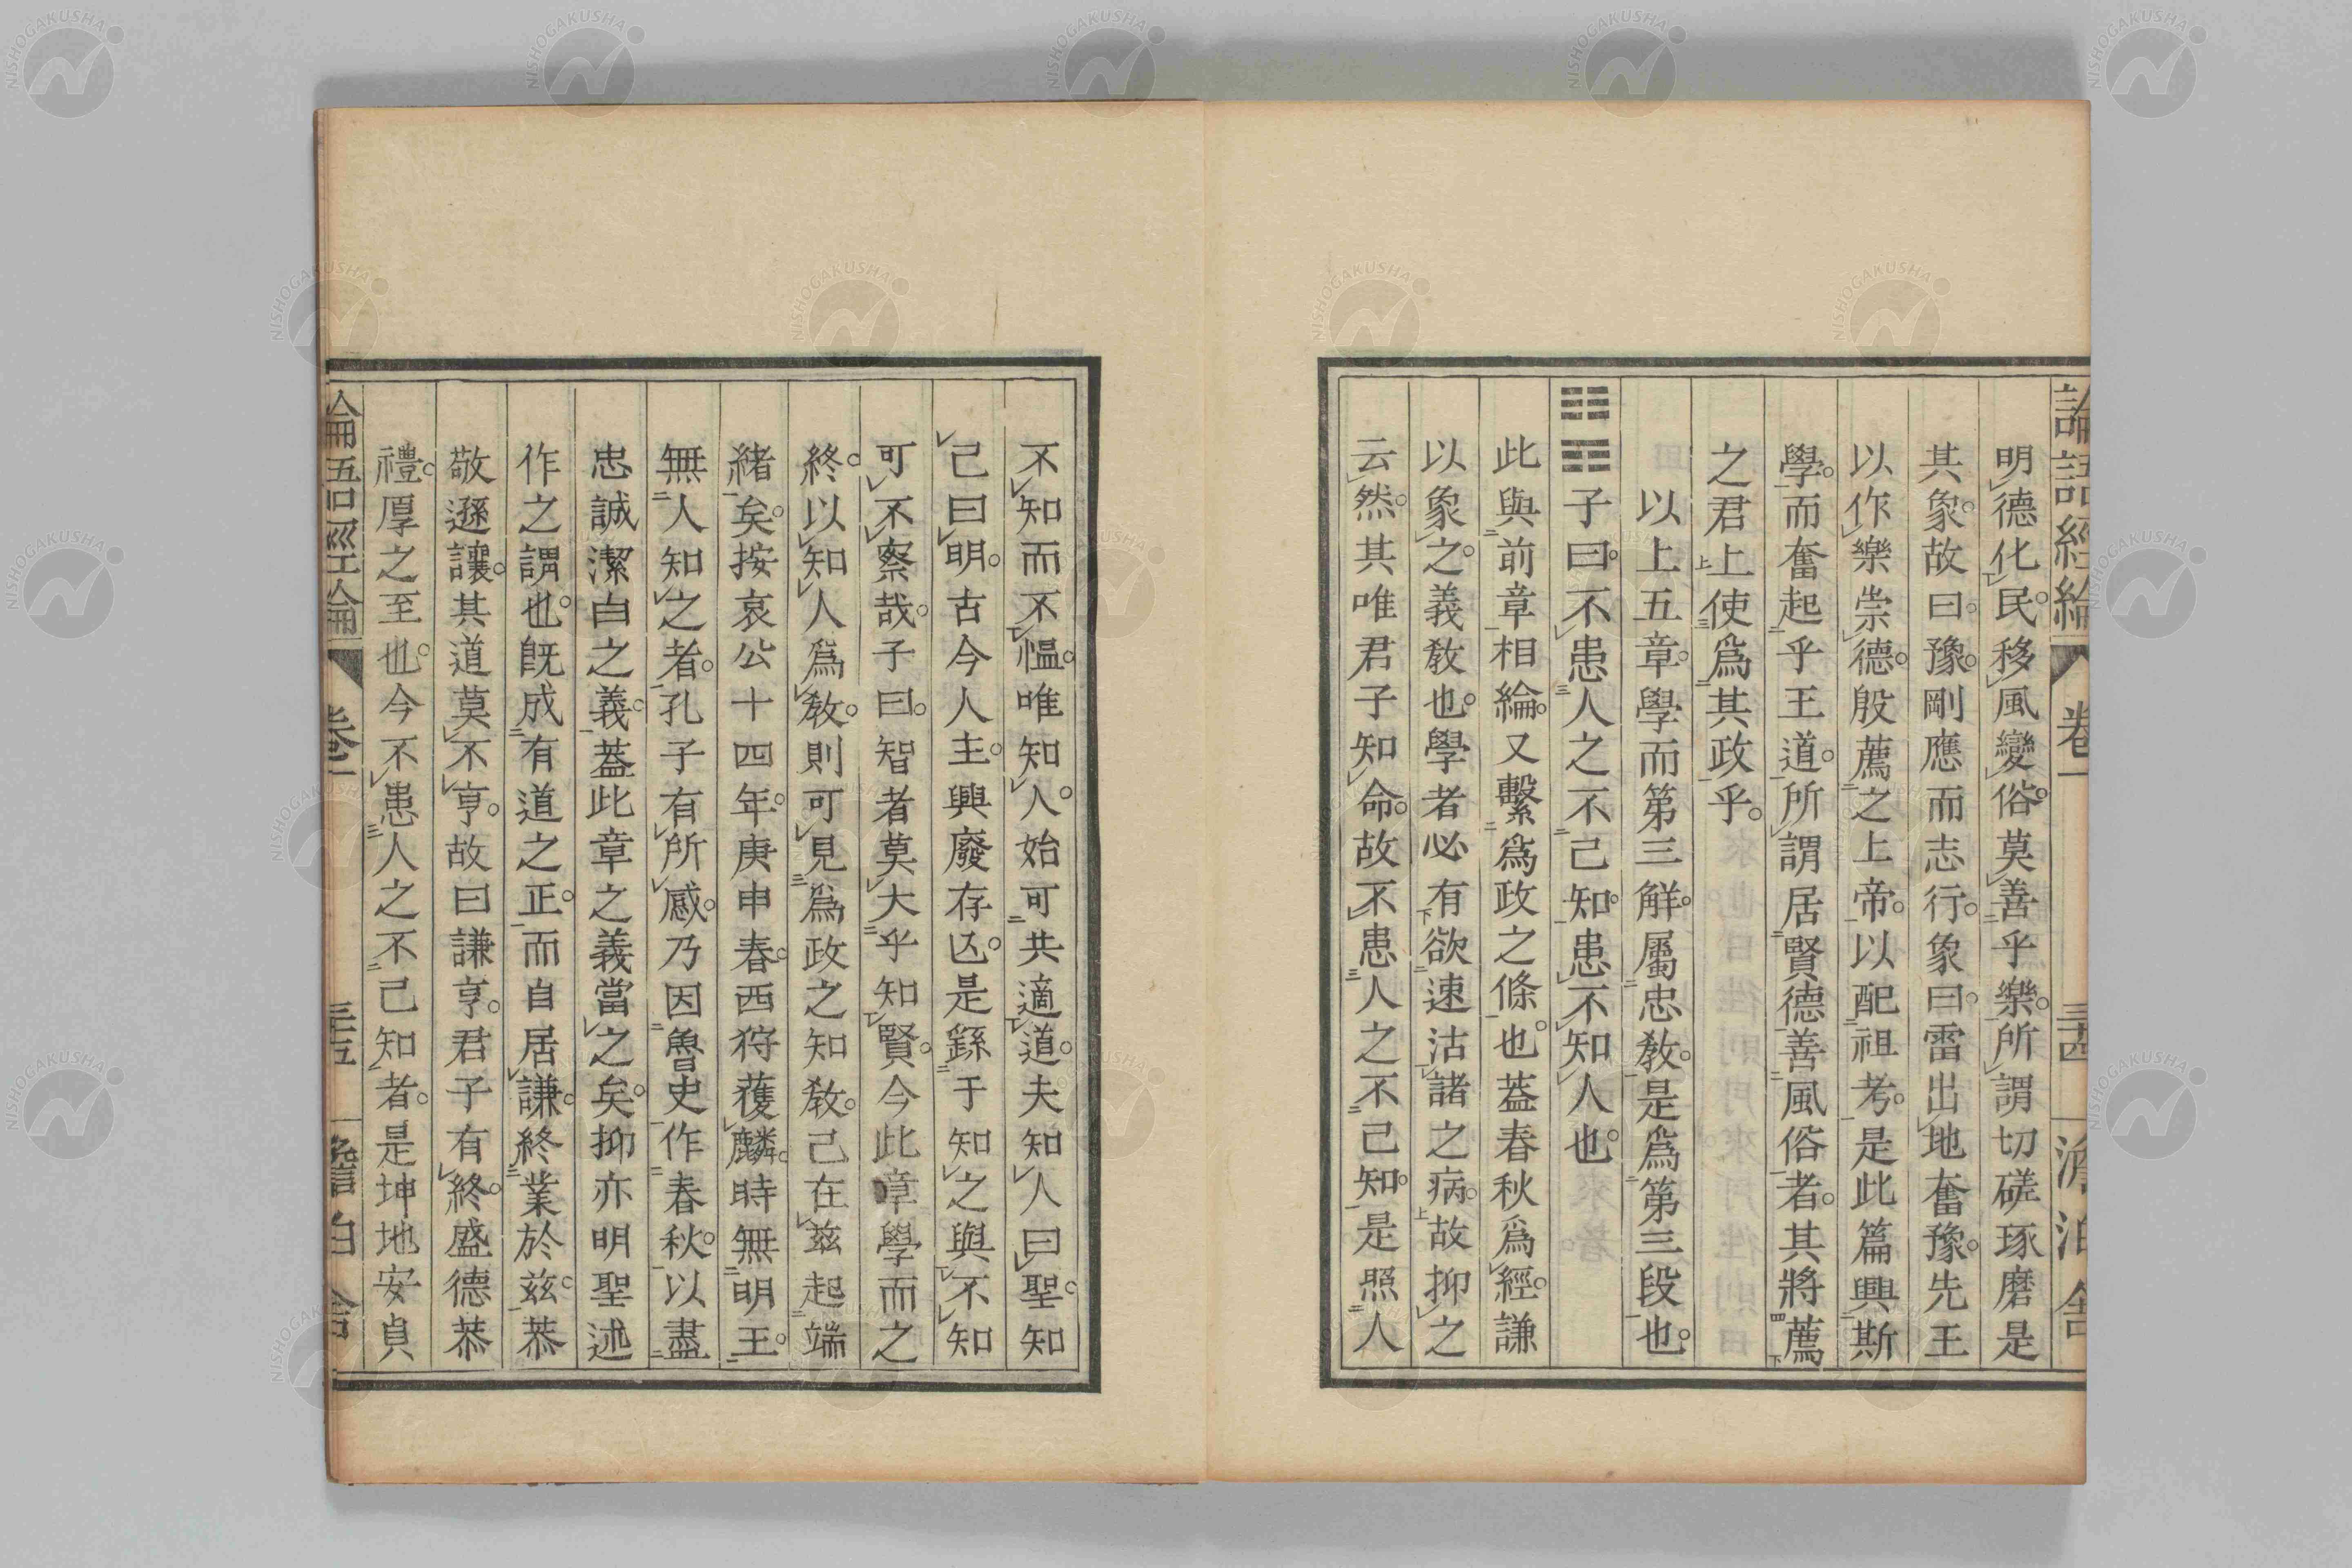 論語經綸 卷一 三十四 澹泊舍
明德化民。移風變俗。莫善乎樂。所謂切磋琢磨是
其象。故曰。豫。剛應而志行。象曰。雷出地奮豫。先王
以作樂崇德。殷薦之上帝。以配祖考。是此篇興斯
學。而奮起乎王道。所謂居賢德善風俗者。其將薦
之君上使爲其政乎。
以上五章。學而第三解。屬忠教。是爲第三段也。
䷁䷎子曰。不患人之不己知。患不知人也。
此與前章相綸。又繫爲政之條也。蓋春秋爲經。謙
以象之。義教也。學者必有欲速沽諸之病。故抑之
云然。其唯君子知命。故不患人之不己知。是照人
不知而不慍。唯知人。始可共適道。夫知人曰聖。知
己曰明。古今人主。興廢存亾。是繇于知之與不知
可不察哉。子曰。智者莫大乎知賢。今此章學而之
終。以知人爲教。則可見爲政之知教。己在玆起端
緒矣。按哀公十四年。庚申春。西狩獲麟。時無明王。
無人知之者。孔子有所感。乃因魯史作春秋。以盡
忠誠潔白之義。蓋此章之義當之矣。抑亦明聖述
作之謂也。旣成有道之正。而自居謙。終業於玆。恭
敬遜讓。其道莫不亨。故曰謙亨。君子有終。盛德恭
禮。厚之至也。今不患人之不己知者。是坤地安貞
論語經綸 卷一 三十五 澹泊舍